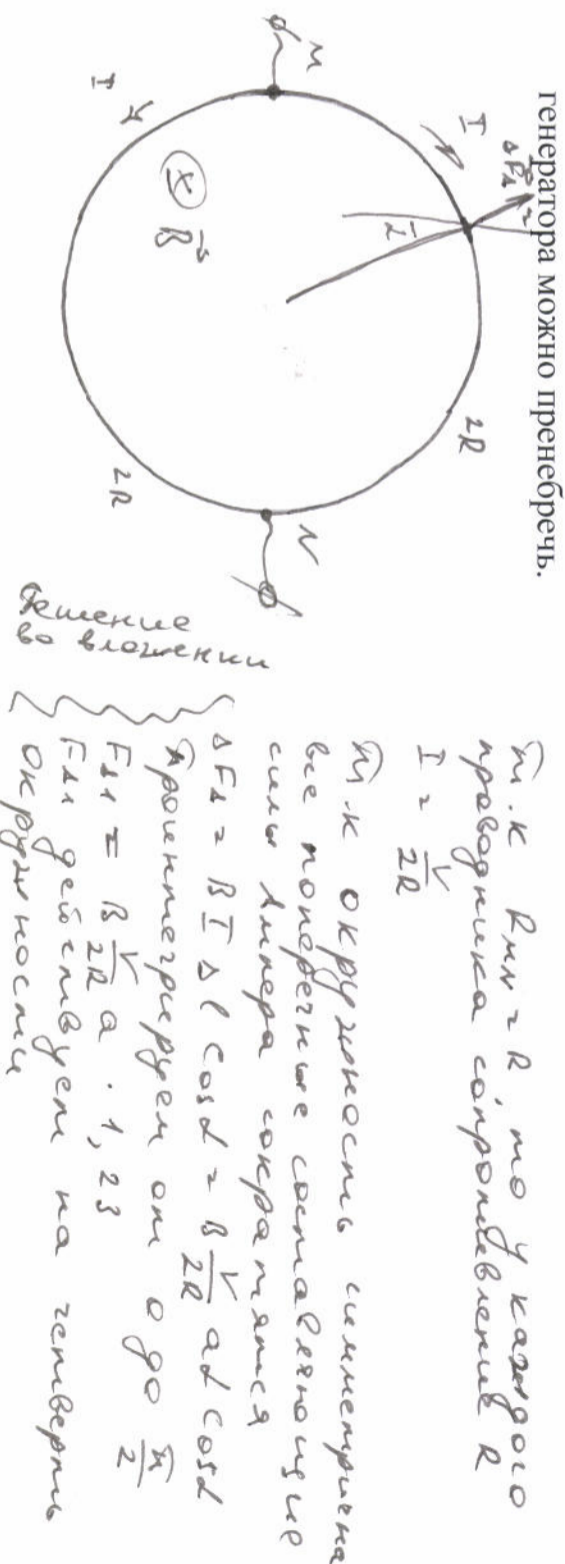 генератора можно пренебречь.
M
I
ΔF_A
α
I
⊗ B⃗
2R
2R
N
решение
во вложении
Т.к R_MN = R, то у каждого
проводника сопротивление R
I = V/2R
Т.к окружность симметрична
все поперечные составляющие
силы Ампера сократятся
ΔF_A = BIΔl cosα = B V/2R aα cosα
Проинтегрируем от 0 до π/2
F_A1 = B V/2R a · 1,23
F_A1 действует на четверть
окружности